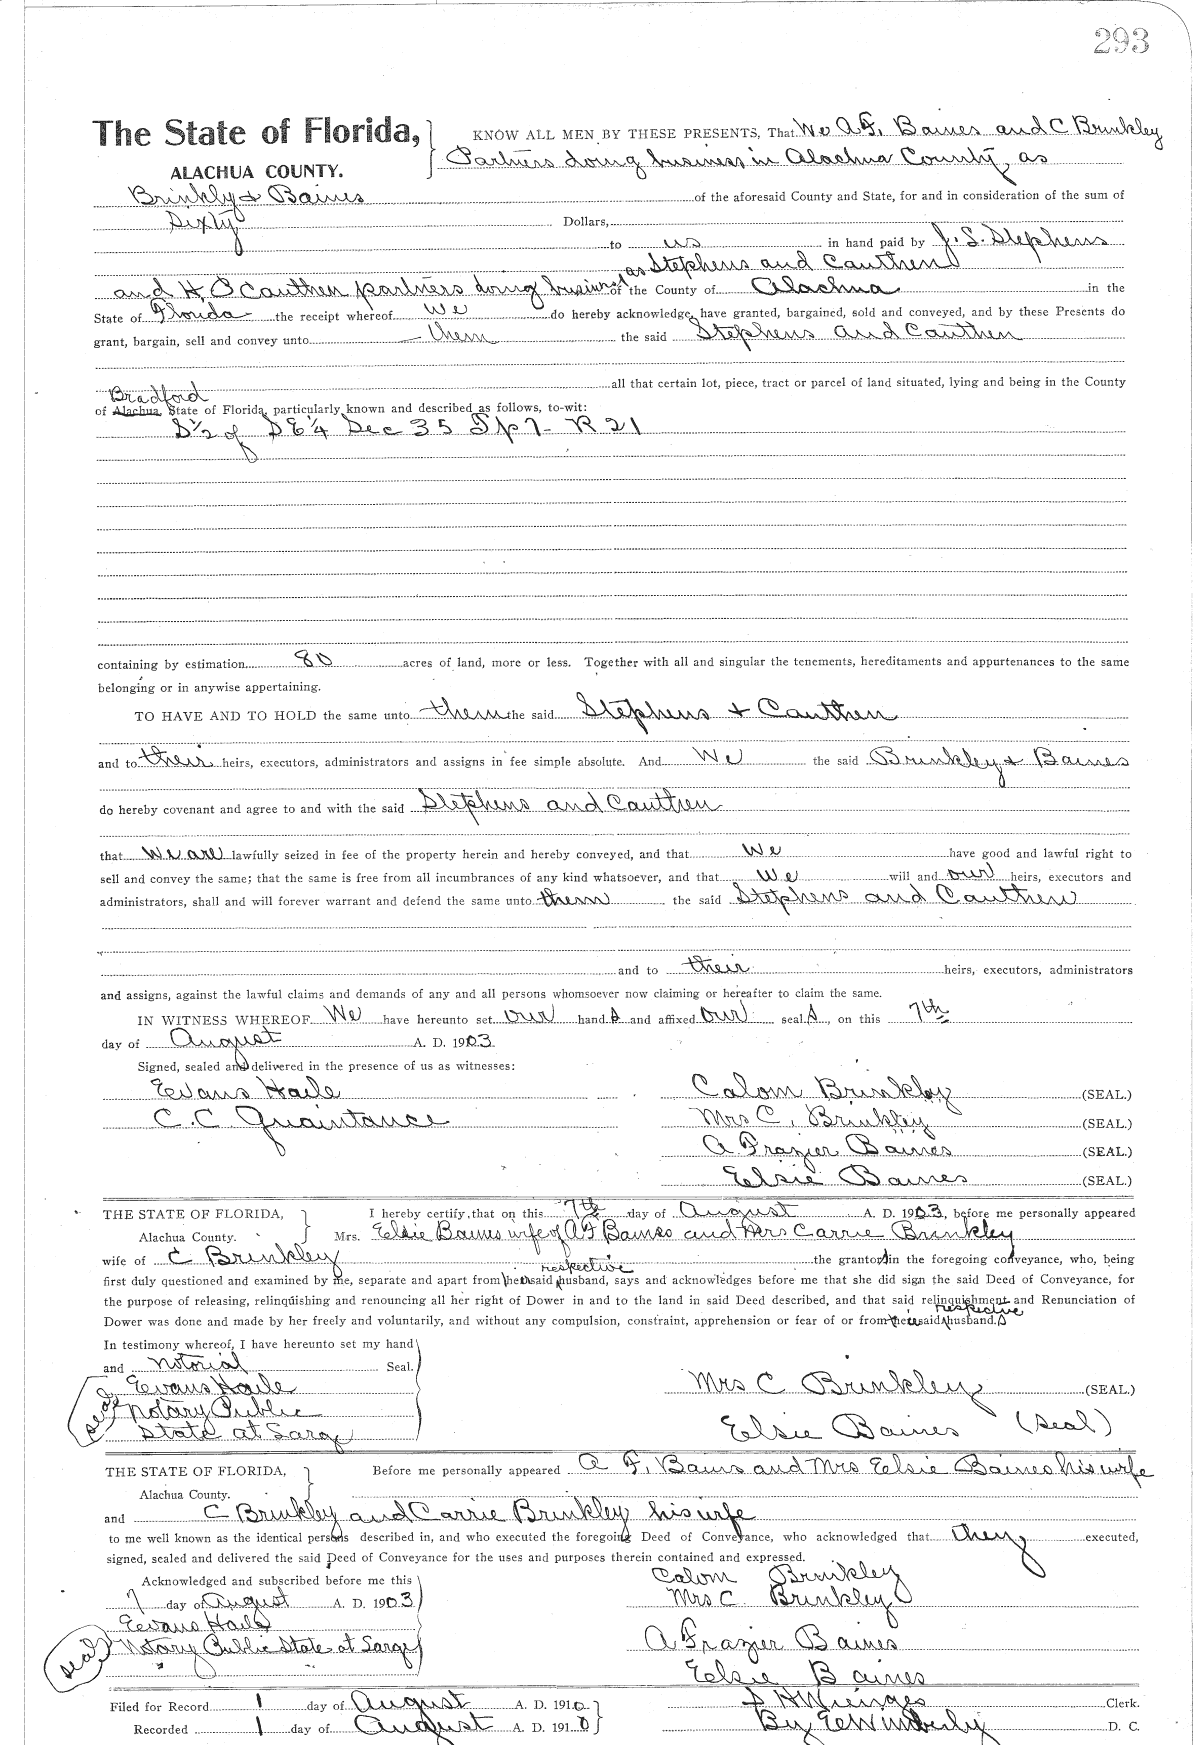 293
The State of Florida, KNOW ALL MEN BY THESE PRESENTS, That We A F. Baines and C Brinkley
ALACHUA COUNTY. Partners doing business in Alachua County, as
Brinkly & Baines of the aforesaid County and State, for and in consideration of the sum of
Sixty Dollars,
to us in hand paid by J. S. Stephens
as Stephens and Cauthen
and H O Cauthen partners doing business of the County of Alachua in the
State of Florida the receipt whereof we do hereby acknowledge, have granted, bargained, sold and conveyed, and by these Presents do
grant, bargain, sell and convey unto them the said Stephens and Cauthen
all that certain lot, piece, tract or parcel of land situated, lying and being in the County
Bradford
of Alachua, State of Florida, particularly known and described as follows, to-wit:
S½ of SE¼ Sec 35 Tp 7- R 21
containing by estimation 80 acres of land, more or less. Together with all and singular the tenements, hereditaments and appurtenances to the same
belonging or in anywise appertaining.
TO HAVE AND TO HOLD the same unto them the said Stephens + Cauthen
and to their heirs, executors, administrators and assigns in fee simple absolute. And We the said Brinkley & Baines
do hereby covenant and agree to and with the said Stephens and Cauthen
that we are lawfully seized in fee of the property herein and hereby conveyed, and that we have good and lawful right to
sell and convey the same; that the same is free from all incumbrances of any kind whatsoever, and that we will and our heirs, executors and
administrators, shall and will forever warrant and defend the same unto them the said Stephens and Cauthen
and to their heirs, executors, administrators
and assigns, against the lawful claims and demands of any and all persons whomsoever now claiming or hereafter to claim the same.
IN WITNESS WHEREOF We have hereunto set our hands and affixed our seals, on this 7th
day of August A. D. 1903.
Signed, sealed and delivered in the presence of us as witnesses:
Evans Haile Calom Brinkley (SEAL.)
C. C. Quaintance Mrs C. Brinkley (SEAL.)
A Frazier Baines (SEAL.)
Elsie Baines (SEAL.)
THE STATE OF FLORIDA, I hereby certify that on this 7th day of August A. D. 1903, before me personally appeared
Alachua County. Mrs. Elsie Baines wife of A F Baines and Mrs Carrie Brinkley
wife of C Brinkley the grantors in the foregoing conveyance, who, being
respective
first duly questioned and examined by me, separate and apart from their said husband, says and acknowledges before me that she did sign the said Deed of Conveyance, for
the purpose of releasing, relinquishing and renouncing all her right of Dower in and to the land in said Deed described, and that said relinquishment and Renunciation of
respective
Dower was done and made by her freely and voluntarily, and without any compulsion, constraint, apprehension or fear of or from their said husband.s
In testimony whereof, I have hereunto set my hand
and Notorial Seal.
Evans Haile Mrs C Brinkley (SEAL.)
seal Notary Public
State at Large Elsie Baines (Seal)
THE STATE OF FLORIDA, Before me personally appeared A F. Bains and Mrs Elsie Baines his wife
Alachua County.
and C Brinkley and Carrie Brinkley his wife
to me well known as the identical persons described in, and who executed the foregoing Deed of Conveyance, who acknowledged that they executed,
signed, sealed and delivered the said Deed of Conveyance for the uses and purposes therein contained and expressed.
Acknowledged and subscribed before me this Calom Brinkley
7 day of August A. D. 1903 Mrs C Brinkley
Evans Haile
seal Notary Public State at Large A Frazier Baines
Elsie Baines
Filed for Record 1 day of August A. D. 1910 S H Wienges Clerk.
Recorded 1 day of August A. D. 1910 By E Wimberly D. C.